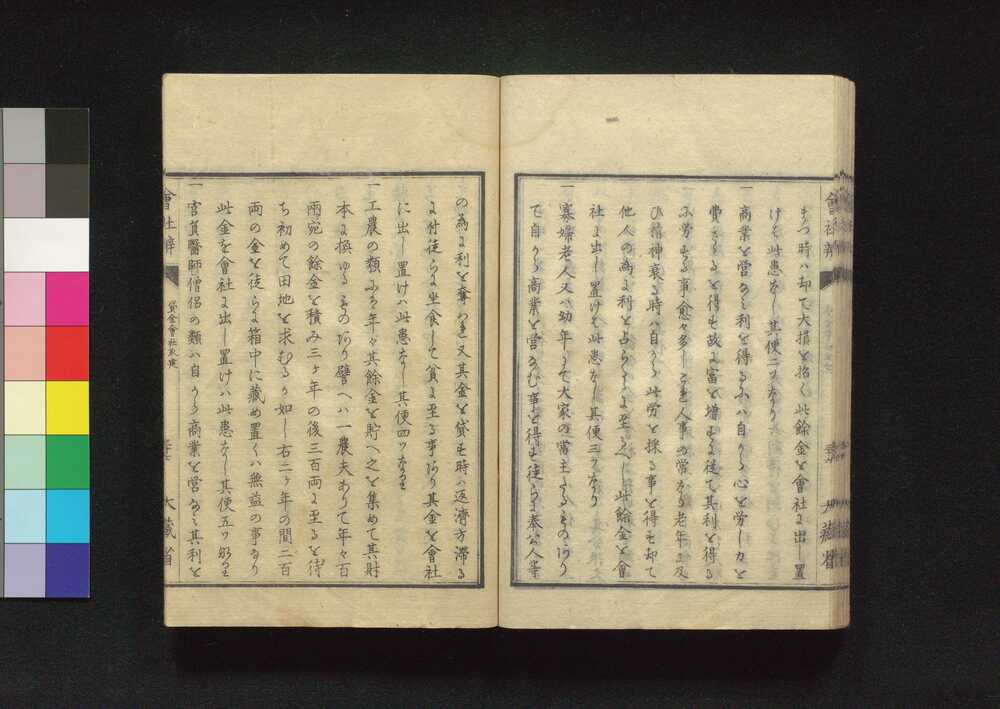 まつ時ハ却て大損を招く此餘金を會社に出し置
けは此患なし其便二ツなり
一商業を營なミ利を得るにハ自から心を労し力を
費さゝるを得す故に富を增すに従て其利を得る
に労する事愈々多し是人事の常なり老年に及
ひ精神衰る時ハ自から此労を採る事を得す却て
他人の為に利を占らるゝに至るへし此餘金を會
社に出し置けは此患なし其便三ツなり
一寡婦老人又ハ幼年にて大家の當主たるものハ
て自から商業を營なむ事を得す徒らに奉公人等
會社辨
大藏省
の為に利を奪はれ又其金を貸す時ハ返濟方滯る
に付徒らに坐食して貧に至る事あり其金を會社
に出し置けハ此患なし其便四ツなり
一工農の類にても年々其餘金を貯へ之を集めて其財
本に換ゆるものあり譬へハ一農夫ありて年々百
兩宛の餘金を積み三ヶ年の後三百兩に至るを待
ち初めて田地を求むるか如し右二ヶ年の間二百
兩の金を徒らに箱中に藏め置くハ無益の事なり
此金を會社に出し置けハ此患なし其便五ツなり
一官員醫師僧侶の類ハ自から商業を營なミ其利を
會社辨
貸金會社
大藏省